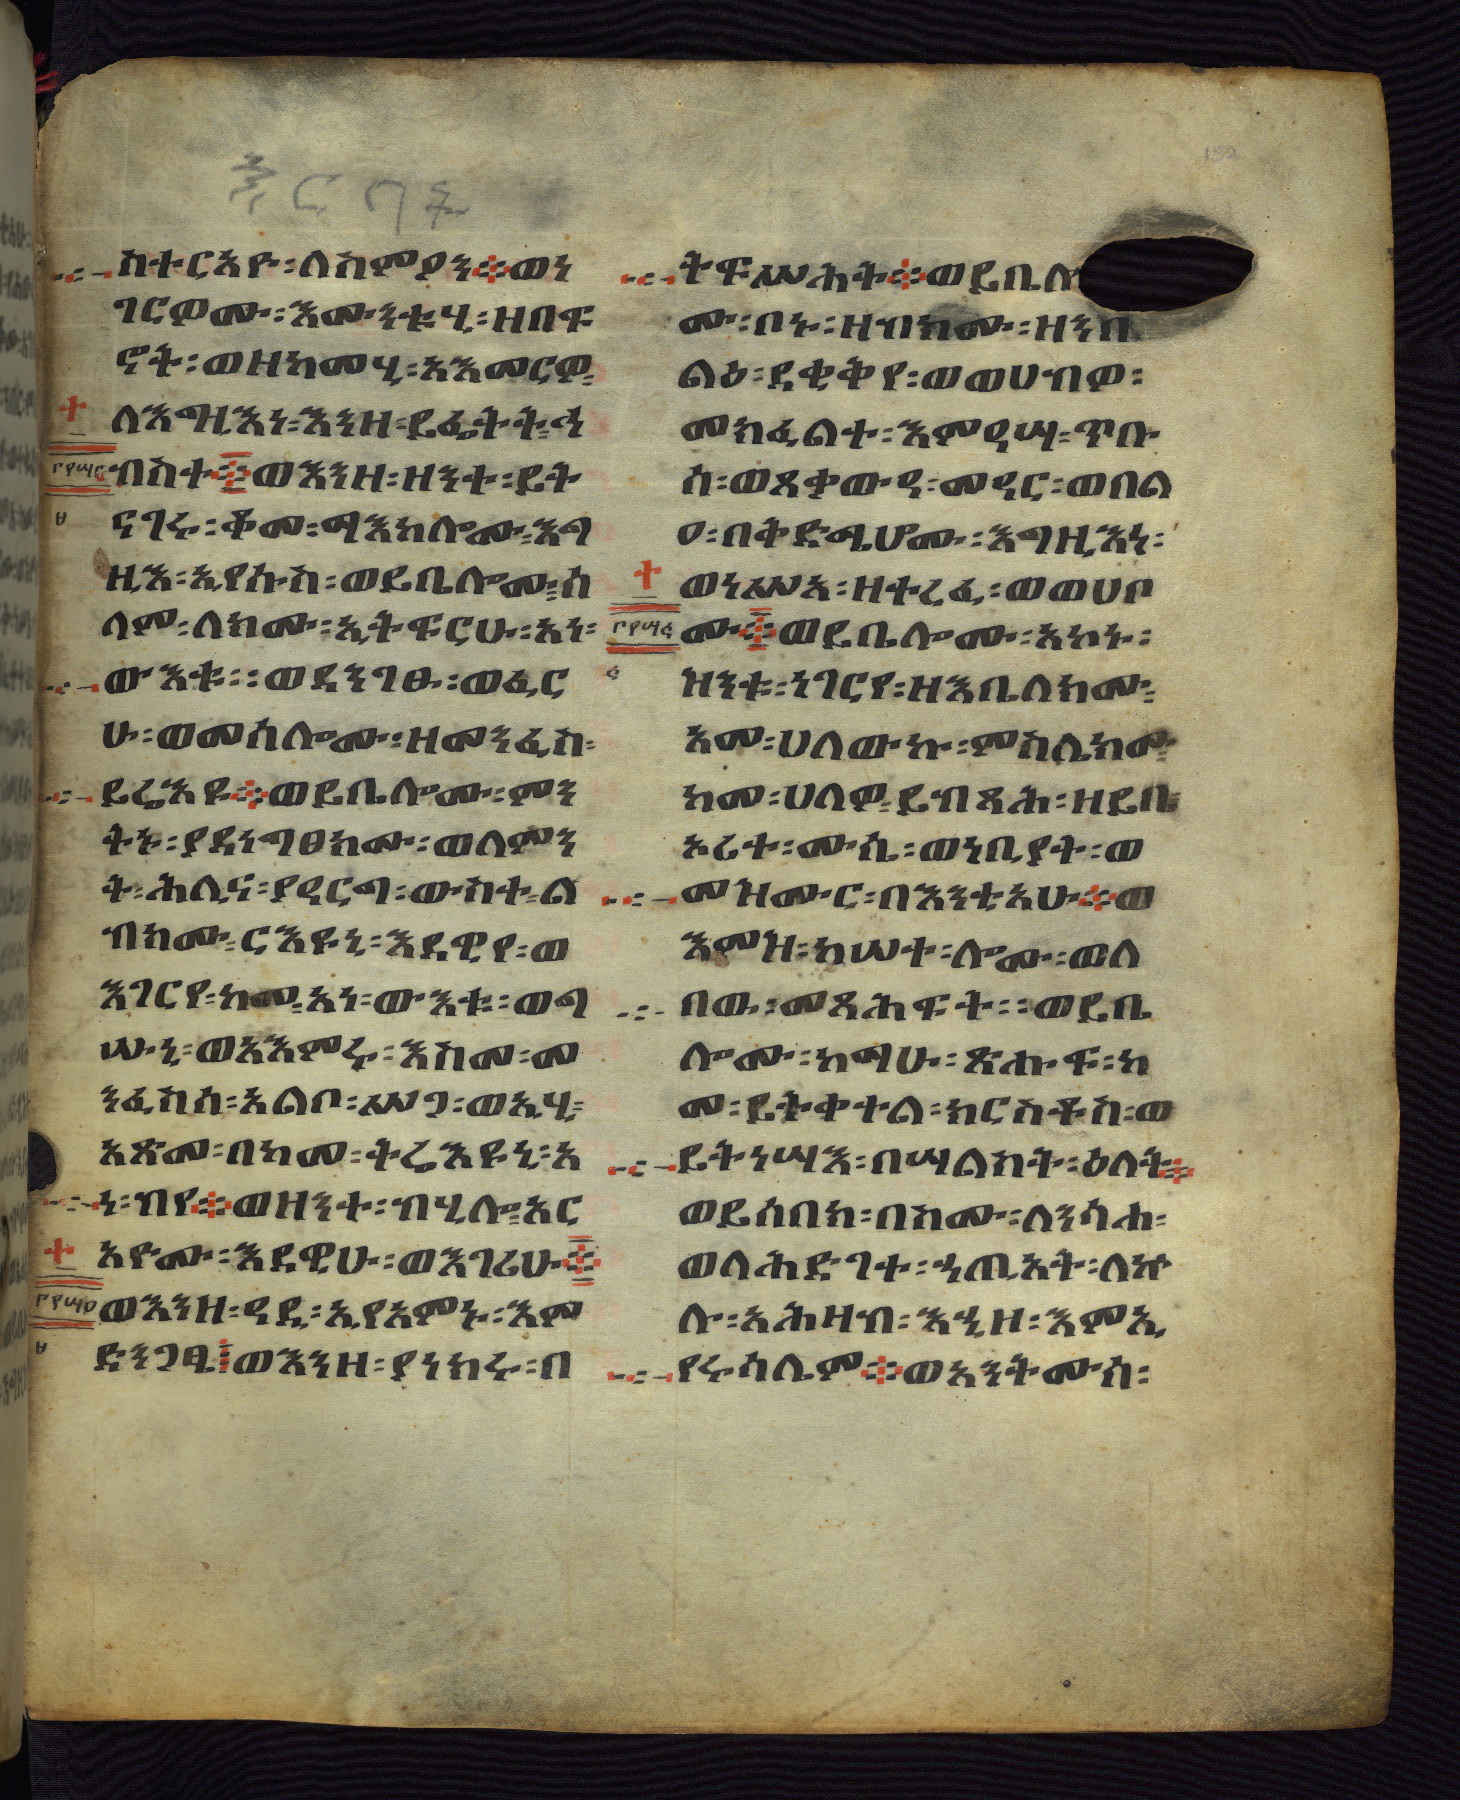 ዕርገት
152
ስተርእዮ ፡ ለስምዖን ፨ ወን
ገርዎሙ ፡ እሙንቱሂ ፡ ዘበፍ
ኖት ፡ ወዘከመሂ ፡ አእመርዎ ፡
ለእግዚእነ ፡ እንዘ ፡ ይፌትት ፡ ኅ
ብስተ ፨ ወእንዘ ፡ ዘንተ ፡ ይት
ናገሩ ፡ ቆመ ፡ ማእከሎሙ ፡ እግ
ዚእ ፡ ኢየሱስ ፡ ወይቤሎሙ ፡ ሰ
ላም ፡ ለክሙ ፡ ኢትፍርሁ ፡ አነ ፡
ውእቱ ፡ ፡ ወደንገፁ ፡ ወፈር
ሁ ፡ ወመሰሎሙ ፡ ዘመንፈስ ፡
ይሬእዩ ፨ ወይቤሎሙ ፡ ምን
ትኑ ፡ ያደነግፀክሙ ፡ ወለምን
ት ፡ ሕሊና ፡ የዓርግ ፡ ውስተ ፡ ል
ብክሙ ፡ ርእዩኒ ፡ እደዊየ ፡ ወ
እገርየ ፡ ከመ ፡ አነ ፡ ውእቱ ፡ ወግ
ሡኒ ፡ ወአእምሩ ፡ እስመ ፡ መ
ንፈስሰ ፡ አልቦ ፡ ሥጋ ፡ ወኢሂ ፡
አጽመ ፡ በከመ ፡ ትሬእዩኒ ፡ አ
ነ ፡ ብየ ፨ ወዘንተ ፡ ብሂሎ ፡ አር
አዮሙ ፡ እደዊሁ ፡ ወእገሪሁ ፨
ወእንዘ ፡ ዓዲ ፡ ኢየአምኑ ፡ እም
ድንጋፄ ፡ ወእንዘ ፡ ያነክሩ ፡ በ
ትፍሥሕት ፨ ወይቤሎ
ሙ ፡ ቦኑ ፡ ዘብክሙ ፡ ዘንበ
ልዕ ፡ ደቂቅየ ፡ ወወሀብዎ ፡
መክፈልተ ፡ እምዓሣ ፡ ጥቡ
ስ ፡ ወጸቃውዓ ፡ መዓር ፡ ወበል
ዐ ፡ በቅድሜሆሙ ፡ እግዚእነ ፡
ወነሥአ ፡ ዘተረፈ ፡ ወወሀቦ
ሙ ፨ ወይቤሎሙ ፡ አኮኑ ፡
ዝንቱ ፡ ነገርየ ፡ ዘእቤለክሙ ፡
አመ ፡ ሀለውኩ ፡ ምስሌክሙ
ከመ ፡ ሀለዎ ፡ ይብጻሕ ፡ ዘይቤ ፡
ኦሪተ ፡ ሙሴ ፡ ወነቢያት ፡ ወ
መዝሙር ፡ በእንቲአሁ ፨ ወ
እምዝ ፡ ከሠተ ፡ ሎሙ ፡ ወለ
በዉ ፡ መጻሕፍተ ፡ ፡ ወይቤ
ሎሙ ፡ ከማሁ ፡ ጽሑፍ ፡ ከ
መ ፡ ይትቀተል ፡ ክርስቶስ ፡ ወ
ይትነሣእ ፡ በሣልስት ፡ ዕለት ፨
ወይሰበክ ፡ በስሙ ፡ ለንሳሐ ፡
ወለሕድገተ ፡ ኃጢአት ፡ ለኵ
ሉ ፡ አሕዛብ ፡ እኂዞ ፡ እምኢ
የሩሳሌም ፨ ወአንትሙሰ ፡